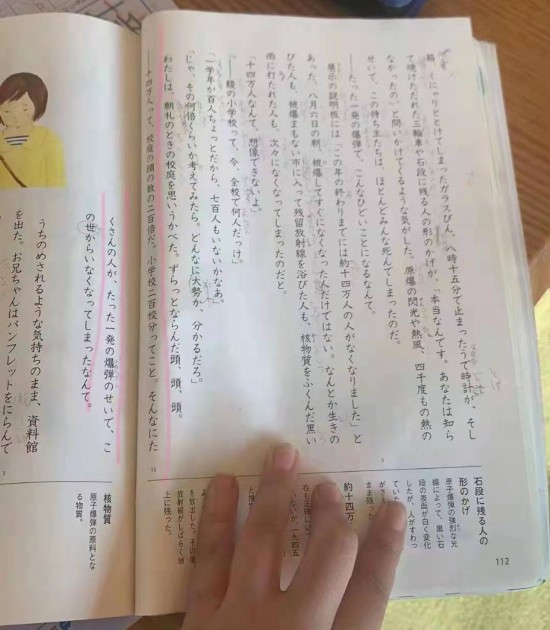 箱、くにゃりととけてしまったガラスびん、八時十五分で止まったうで時計が、そし
て焼けただれた三輪車や石段に残る人の形のかげが、「本当なんです。あなたは知ら
なかったの。」と問いかけてくるような気がした。原爆の閃光や熱風、四千度もの熱の
せいで、この持ち主たちは、ほとんどみんな死んでしまったのだ。
――たった一発の爆弾で、こんなひどいことになるなんて。
展示の説明板には「この年の終わりまでには約十四万人の人がなくなりました」と
あった。八月六日の朝、被爆してすぐになくなった人だけではない。なんとか生きの
びた人も、被爆まもない市に入って残留放射線を浴びた人も、核物質をふくんだ黒い
雨に打たれた人も、次々になくなってしまったのだと。
「十四万人なんて、想像できないよ。」
「――綾の小学校って、今、全校で何人だっけ。」
「一学年が百人ちょっとだから、七百人もいないかなあ。」
「じゃ、その何倍くらいか考えてみたら。どんなに大勢か、分かるだろ。」
わたしは、朝礼のときの校庭を思いうかべた。ずらっとならんだ頭、頭、頭。
――十四万人って、校庭の頭の数の二百倍だ。小学校二百校分ってこと。そんなにた
くさんの人が、たった一発の爆弾のせいで、こ
の世からいなくなってしまったなんて。
うちのめされるような気持ちのまま、資料館
を出た。お兄ちゃんはパンフレットをにらんで
石段に残る人の
形のかげ
原子爆弾の強烈な光
線によって、黒い石
段の表面が白く変化
したが、人がすわっ
ていた
まま残った
約十四万
一九四五
と推
を放出した。その後
放射線がしばらく地
上に残った。
核物質
原子爆弾の原料とな
る物質。
5
10
5
112